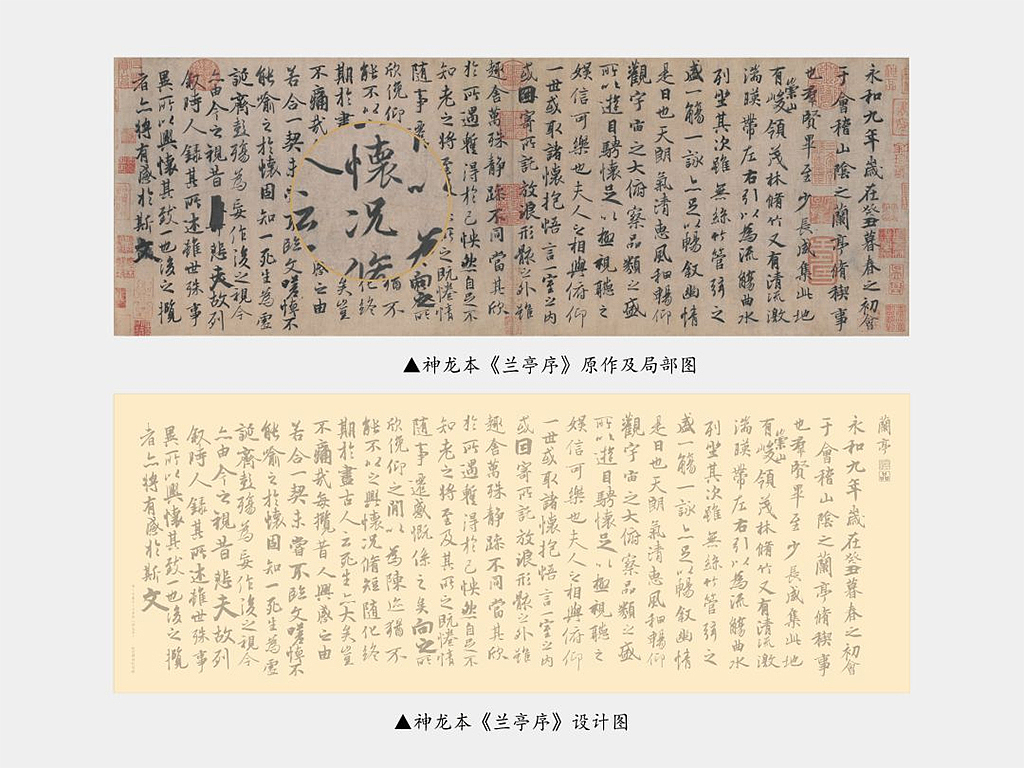 永和九年歲在癸丑暮春之初會
于會稽山陰之蘭亭脩稧事
也羣賢畢至少長咸集此地
有崇山峻領茂林脩竹又有清流激
湍暎帶左右引以為流觴曲水
列坐其次雖無絲竹管弦之
盛一觴一詠亦足以暢敘幽情
是日也天朗氣清惠風和暢仰
觀宇宙之大俯察品類之盛
所以遊目騁懷足以極視聽之
娛信可樂也夫人之相與俯仰
一世或取諸懷抱悟言一室之內
或因寄所託放浪形骸之外雖
趣舍萬殊靜躁不同當其欣
於所遇暫得於己怏然自足不
知老之將至之既惓情
隨事向之所
欣俛仰猶不
能不以終
懷況脩
期於矣豈
不痛哉感之由
若合一契未臨文嗟悼不
能喻之於懷固知一死生為虛
誕齊彭殤為妄作後之視今
亦由今之視昔悲夫故列
敘時人錄其所述雖世殊事
異所以興懷其致一也後之攬
者亦將有感於斯文
▲神龙本《兰亭序》原作及局部图
蘭亭
永和九年歲在癸丑暮春之初會
于會稽山陰之蘭亭脩稧事
也羣賢畢至少長咸集此地
有崇山峻領茂林脩竹又有清流激
湍暎帶左右引以為流觴曲水
列坐其次雖無絲竹管弦之
盛一觴一詠亦足以暢敘幽情
是日也天朗氣清惠風和暢仰
觀宇宙之大俯察品類之盛
所以遊目騁懷足以極視聽之
娛信可樂也夫人之相與俯仰
一世或取諸懷抱悟言一室之內
或因寄所託放浪形骸之外雖
趣舍萬殊靜躁不同當其欣
於所遇暫得於己怏然自足不
知老之將至及其所之既惓情
隨事遷感慨係之矣向之所
欣俛仰之閒以為陳迹猶不
能不以之興懷況脩短隨化終
期於盡古人云死生亦大矣豈
不痛哉每攬昔人興感之由
若合一契未嘗不臨文嗟悼不
能喻之於懷固知一死生為虛
誕齊彭殤為妄作後之視今
亦由今之視昔悲夫故列
敘時人錄其所述雖世殊事
異所以興懷其致一也後之攬
者亦將有感於斯文
▲神龙本《兰亭序》设计图